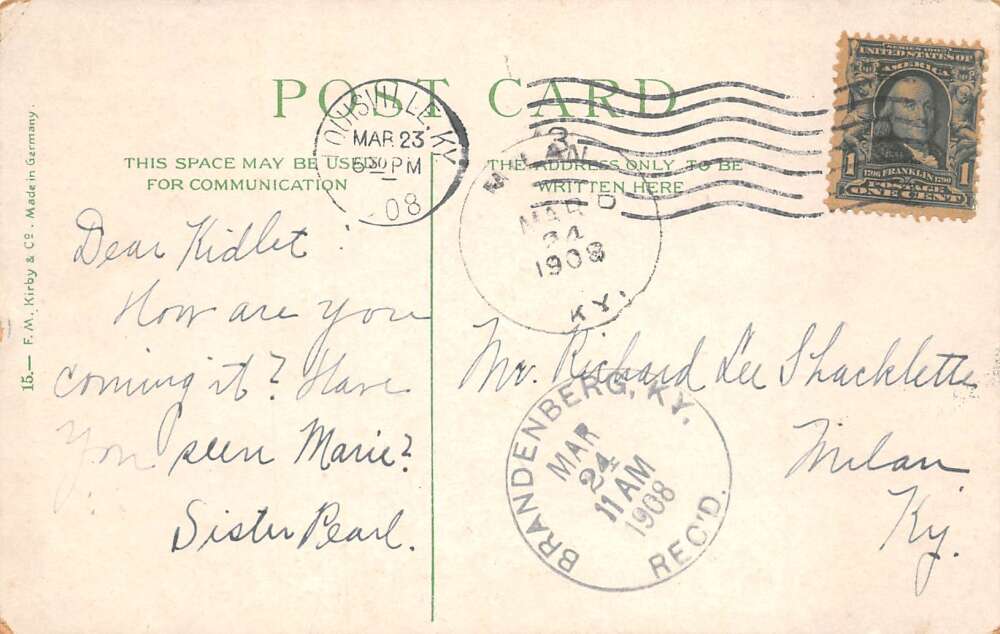 POST CARD
THIS SPACE MAY BE USED
FOR COMMUNICATION
THE ADDRESS ONLY TO BE
WRITTEN HERE
LOUISVILLE, KY.
MAR 23
6 30 PM
08
3
MILAN
MAR
24
1908
KY.
SERIES 1902
UNITED STATES OF
AMERICA
1
1706 FRANKLIN 1790
1
POSTAGE
ONE CENT
15.— F. M. Kirby & Co. Made in Germany.
Dear Kidlet!
How are you
coming it? Have
you seen Marie?
Sister Pearl.
Mr. Richard Lee Shacklette
Milan
Ky.
BRANDENBERG, KY.
MAR
24
11 AM
1908
REC'D.